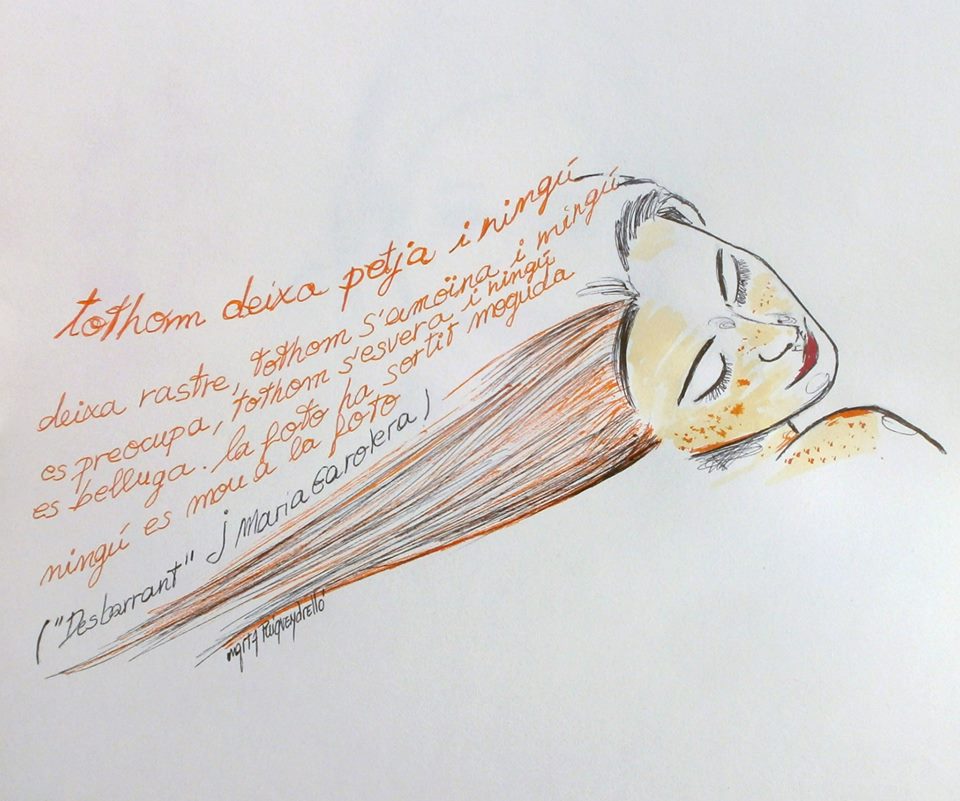 tothom deixa petja i ningú
deixa rastre, tothom s'amoïna i ningú
es preocupa, tothom s'esvera i ningú
es belluga. la foto ha sortit moguda
ningú es mou a la foto
("Desbarrant" j Maria Garolera)